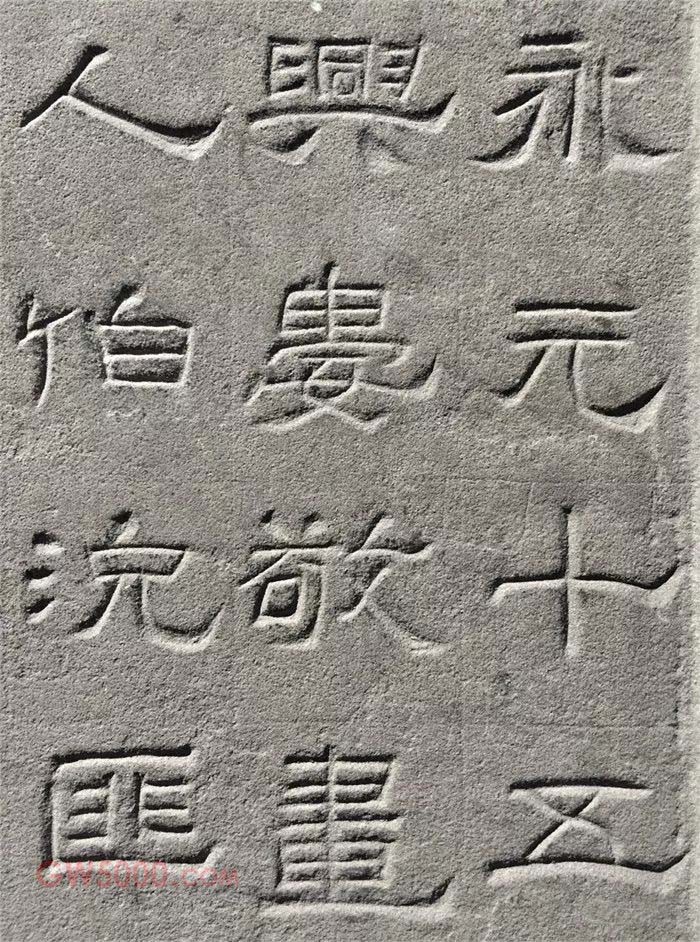 永元十五
興婁敬畫
人伯沈匪
GW5000.com